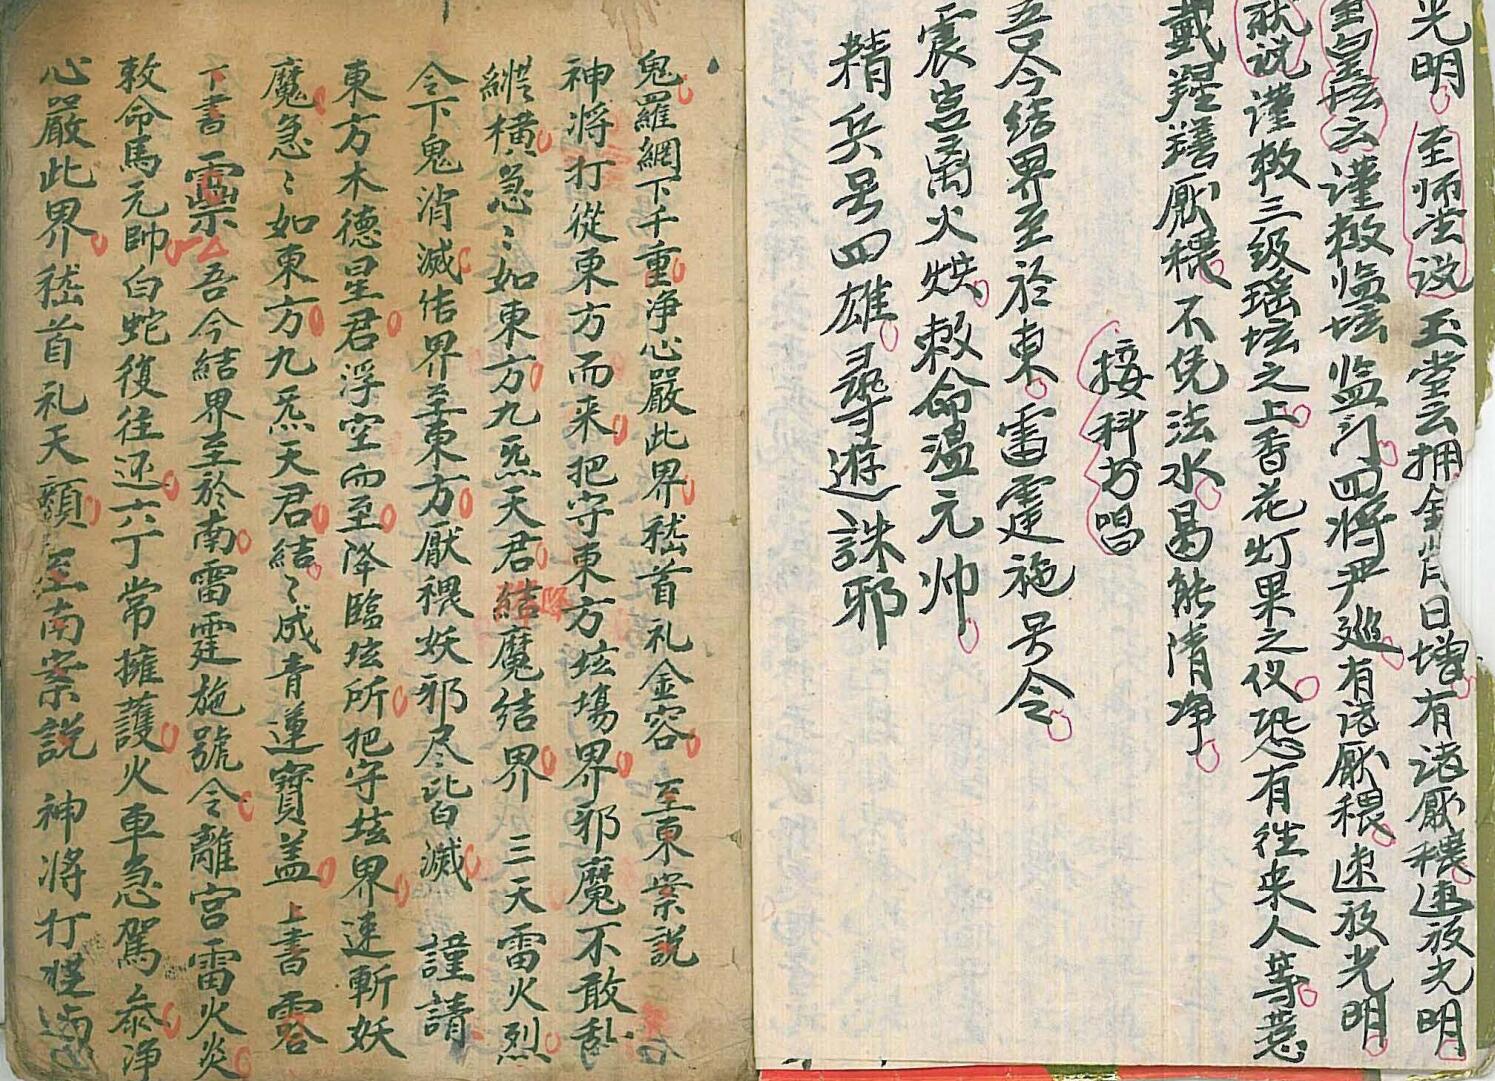 光明至师堂说玉堂云拥金背日增有诸厭穢速放光明
至皇坛云谨敕临坛监门四将尹巡有诸厭穢速放光明
就说谨敕三级瑶坛之上香花灯果之仪恐有往来人等惹
戴腥羶厭穢不凭法水曷能清净
接科书唱
吾今结界至於東雷霆施号令
震宫离火烘敕命温元帅
精兵号四雄尋遊誅邪
鬼羅網下千重净心嚴此界嵇首礼金容至東案説
神将打從東方而来把守東方坛場界邪魔不敢乱
縱橫急〻如東方九炁天君結魔結界三天雷火烈
令下鬼消滅佶界至東方厭穢妖邪尽皆滅謹請
東方木德星君浮空而至降臨坛所把守坛界速斬妖
魔急〻如東方九炁天君結〻成青蓮寶盖上書
下書吾今結界至於南雷霆施號令離宫雷火炎
敕命馬元帥白蛇復往还六丁常擁護火車急駕叅净
心嚴此界嵇首礼天顏至南案説神将打從